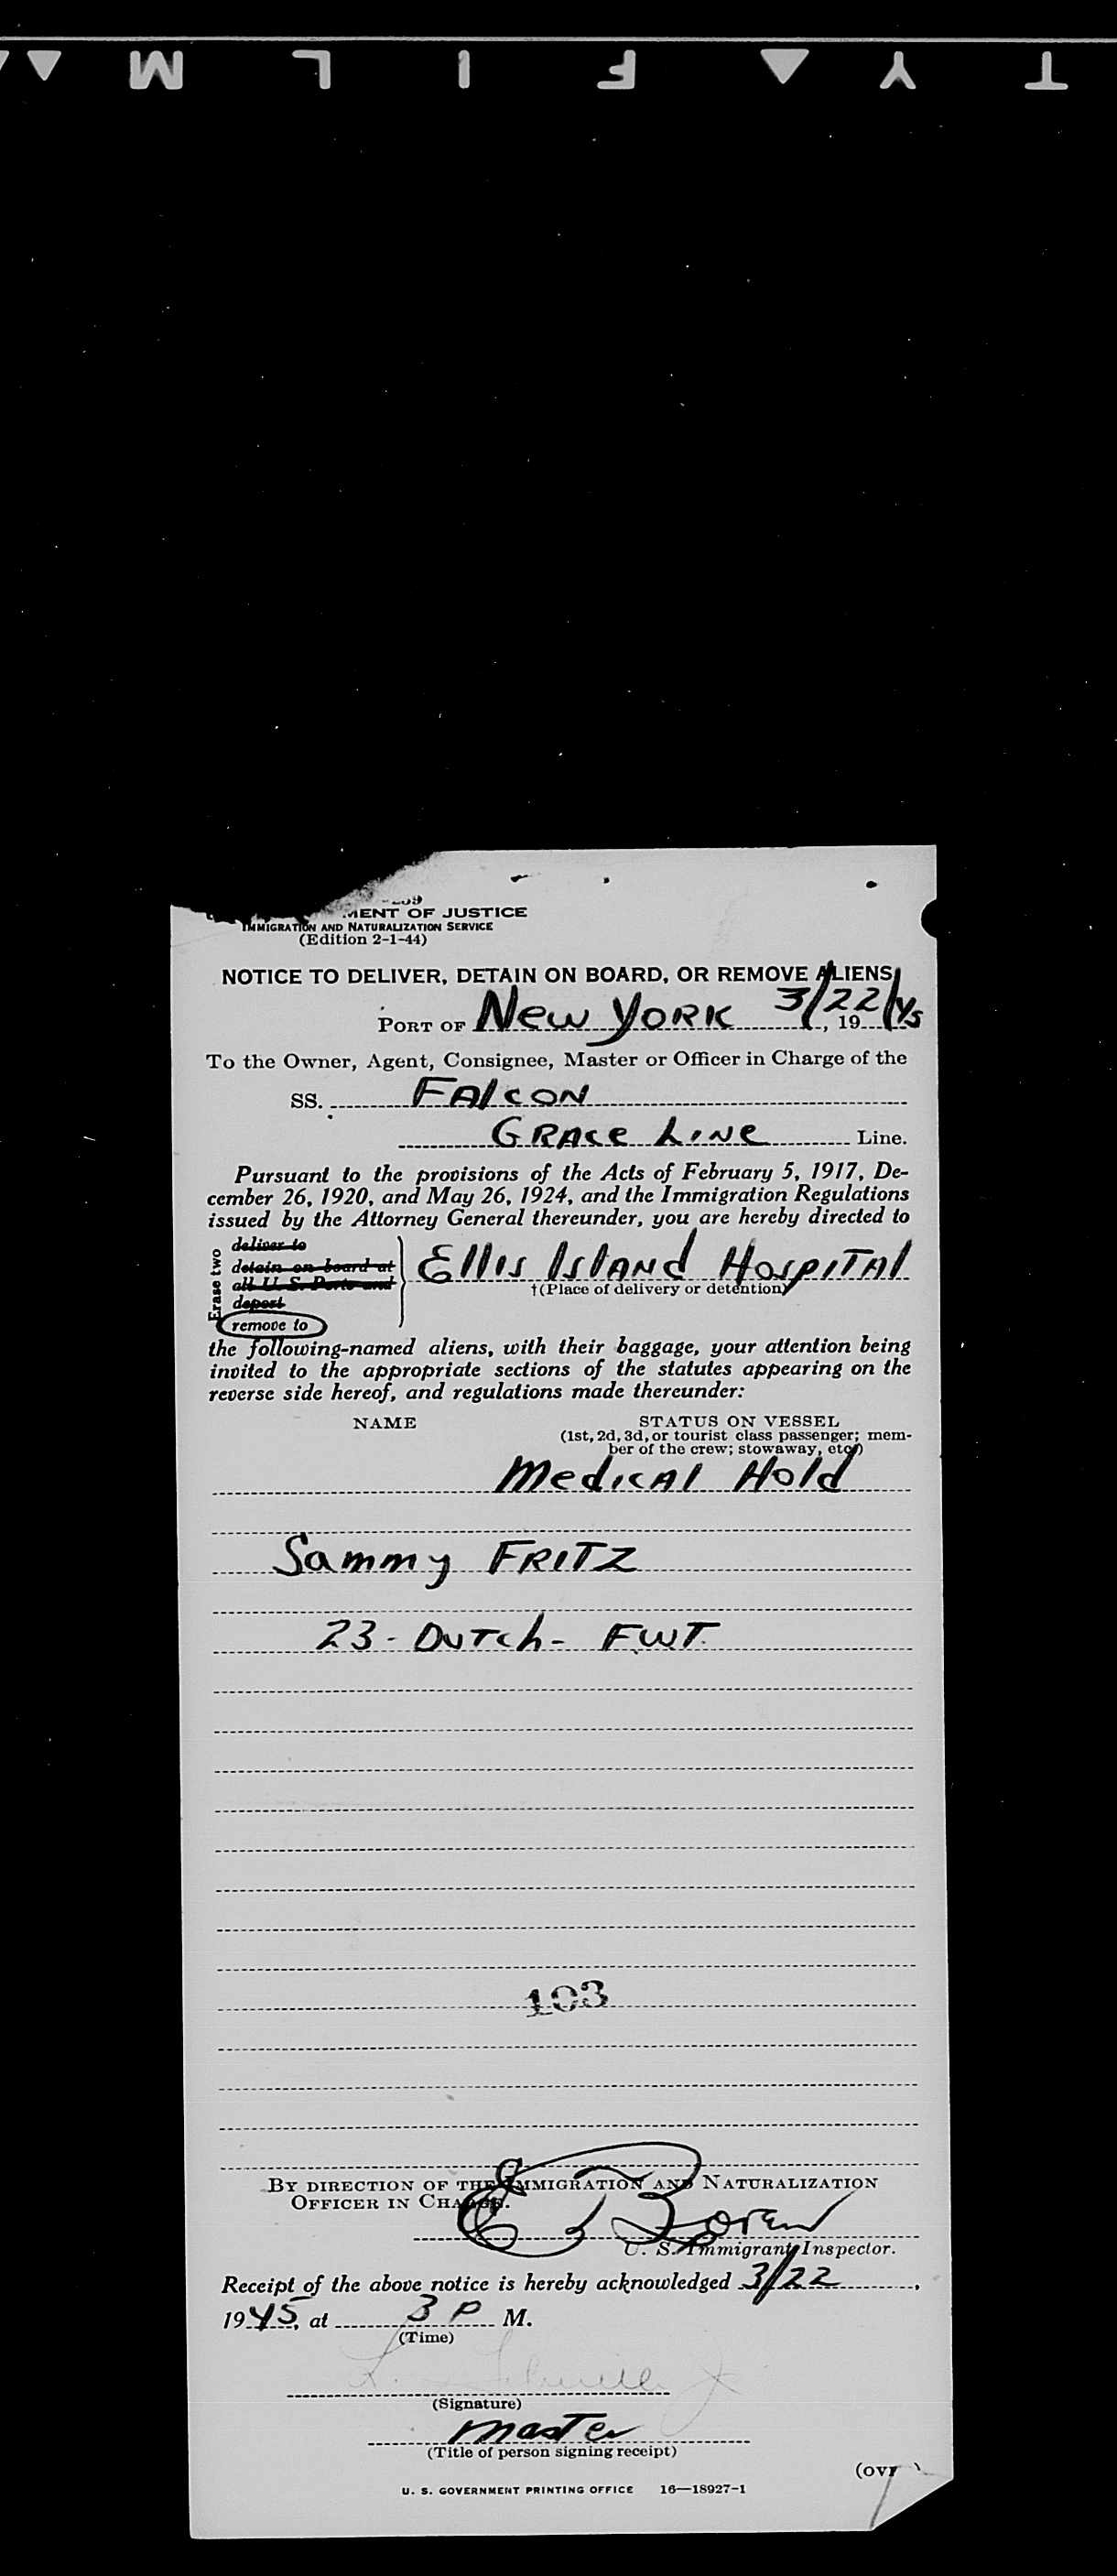 T Y F I L M
MENT OF JUSTICE
IMMIGRATION AND NATURALIZATION SERVICE
(Edition 2-1-44)
NOTICE TO DELIVER, DETAIN ON BOARD, OR REMOVE ALIENS
PORT OF New York 3/22, 19 45
To the Owner, Agent, Consignee, Master or Officer in Charge of the
SS. FALCON
GRACE LINE Line.
Pursuant to the provisions of the Acts of February 5, 1917, De-
cember 26, 1920, and May 26, 1924, and the Immigration Regulations
issued by the Attorney General thereunder, you are hereby directed to
Erase two
deliver to
detain on board at
all U. S. Ports and
deport
remove to
Ellis Island Hospital
†(Place of delivery or detention)
the following-named aliens, with their baggage, your attention being
invited to the appropriate sections of the statutes appearing on the
reverse side hereof, and regulations made thereunder:
NAME STATUS ON VESSEL
(1st, 2d, 3d, or tourist class passenger; mem-
ber of the crew; stowaway, etc.)
Medical Hold
Sammy FRITZ
23 - Dutch - FWT.
103
BY DIRECTION OF THE IMMIGRATION AND NATURALIZATION
OFFICER IN CHARGE.
U. S. Immigrant Inspector.
Receipt of the above notice is hereby acknowledged 3/22,
1945, at 3 P M.
(Time)
(Signature)
master
(Title of person signing receipt)
U. S. GOVERNMENT PRINTING OFFICE 16—18927-1